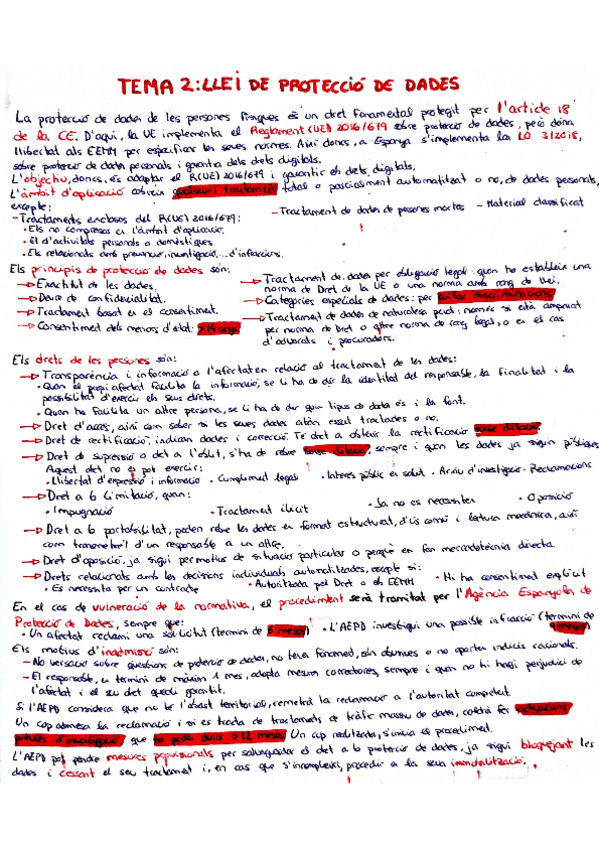 TEMA 2: LLEI DE PROTECCIÓ DE DADES
La protecció de dades de les persones físiques és un dret fonamental protegit per l'article 18
de la CE. D'aquí, la UE implementa el Reglament (UE) 2016/679 sobre protecció de dades, però dóna
llibertat als EEMM per especificar les seves normes. Així doncs, a Espanya s'implementa la LO 3/2018,
sobre protecció de dades personals i garantia dels drets digitals.
L'objectiu, doncs, és adaptar el R(UE) 2016/679 i garantir els drets digitals.
L'àmbit d'aplicació cobreix qualsevol tractament total o parcialment automatitzat o no, de dades personals,
excepte:
- Tractaments exclosos del R(UE) 2016/679: - Tractament de dades de persones mortes - Material classificat
• Els no compresos en l'àmbit d'aplicació.
• El d'activitats personals o domèstiques.
• Els relacionats amb prevenció, investigació,... d'infraccions.
Els principis de protecció de dades són:
→ Exactitud de les dades.
→ Deure de confidencialitat.
→ Tractament basat en el consentiment.
→ Consentiment dels menors d'edat: >14 anys
→ Tractament de dades per obligació legal: quan ho estableix una
norma de Dret de la UE o una norma amb rang de llei.
→ Categories especials de dades: per evitar discriminacions
→ Tractament de dades de naturalesa penal: només si està amparat
per norma de Dret o altre norma de rang legal, o en el cas
d'advocats i procuradors.
Els drets de les persones són:
→ Transparència i informació a l'afectat en relació al tractament de les dades:
• Quan el propi afectat facilita la informació, se li ha de dir la identitat del responsable, la finalitat i la
possibilitat d'exercir els seus drets.
• Quan ho facilita un altre persona, se li ha de dir quin tipus de dada és i la font.
→ Dret d'accés, així com saber si les seves dades estan essent tractades o no.
→ Dret de rectificació, indican dades i correcció. Té dret a obtenir la rectificació sense dilació
→ Dret de supressió o dret a l'oblit, s'ha de rebre sense dilació, sempre i quan les dades ja siguin públiques
Aquest dret no es pot exercir:
• Llibertat d'expressió i informació • Compliment legal • Interès públic en salut • Arxiu d'investigació - Reclamacions
→ Dret a la limitació, quan:
• Impugnació • Tractament ilícit • Ja no es necessiten • Oposició
→ Dret a la portabilitat, poden rebre les dades en format estructurat, d'ús comú i lectura mecànica, així
com transmetre'l d'un responsable a un altre.
→ Dret d'oposició, ja sigui per motius de situació particular o perquè en fan mercadotècnia directa
→ Drets relacionats amb les decisions individuals automatitzades, excepte si:
• És necessita per un contracte • Autoritzada pel Dret o els EEMM • Hi ha consentiment explícit
En el cas de vulneració de la normativa, el procediment serà tramitat per l'Agència Espanyola de
Protecció de Dades, sempre que:
• Un afectat reclami una sol·licitud (termini de 6 mesos) • L'AEPD investigui una possible infracció (termini de
9 mesos)
Els motius d'inadmissió són:
- No versació sobre qüestions de protecció de dades, no tenen fonament, són abusives o no aporten indicis racionals.
- El responsable, en termini de màxim 1 mes, adopta mesures correctores, sempre i quan no hi hagi perjudici de
l'afectat i el seu dret quedi garantit.
Si l'AEPD considera que no té l'abast territorial, remetrà la reclamació a l'autoritat competent
Un cop admesa la reclamació i si es tracta de tractaments de tràfic massiu de dades, caldrà fer actuacions
prèvies d'investigació que no poden durar >12 mesos. Un cop realitzats, s'inicia el procediment.
L'AEPD pot prendre mesures provisionals per salvaguardar el dret a la protecció de dades, ja sigui bloquejant les
dades i cessant el seu tractament i, en cas que s'incompleixi, procedir a la seva immobilització.